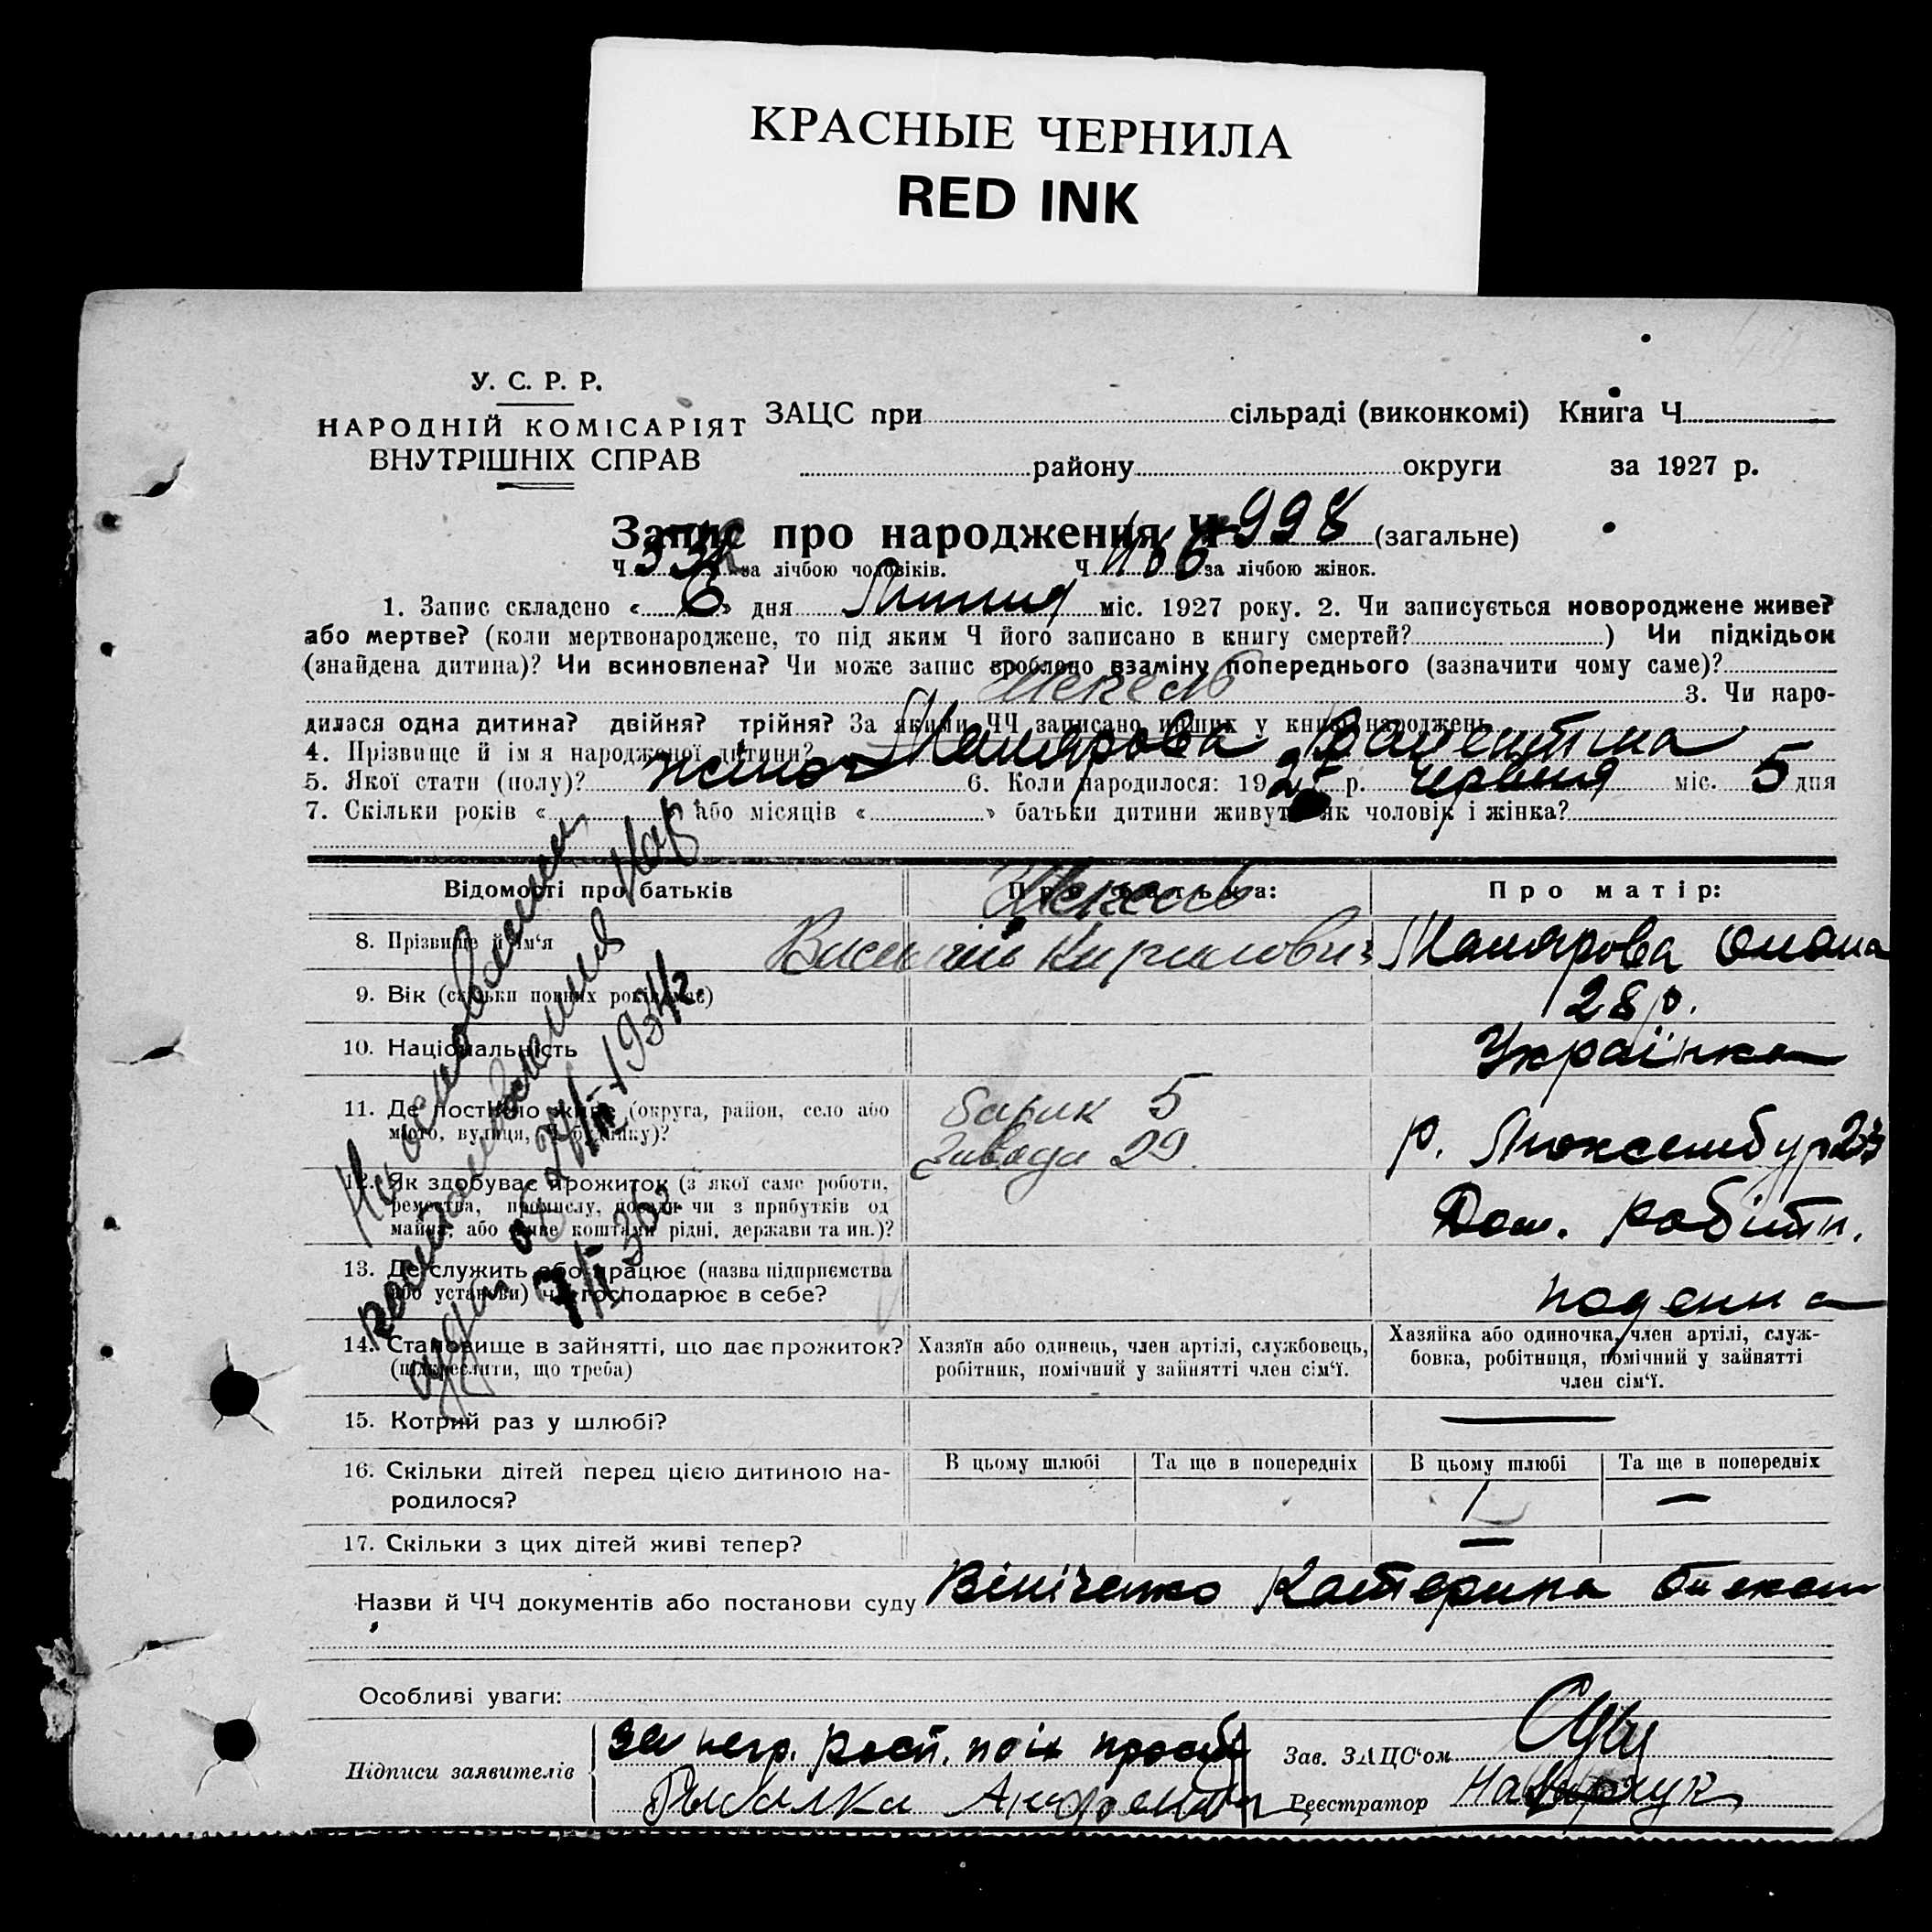 КРАСНЫЕ ЧЕРНИЛА
RED INK
У. С. Р. Р.
НАРОДНІЙ КОМІСАРІЯТ
ВНУТРІШНІХ СПРАВ
ЗАЦС при сільраді (виконкомі) Книга Ч
району округи за 1927 р.
Запис про народження Ч 998 (загальне)
Ч за лічбою чоловіків. Ч за лічбою жінок.
1. Запис складено « 6 » дня Липня міс. 1927 року. 2. Чи записується новороджене живе?
або мертве? (коли мертвонароджене, то під яким Ч його записано в книгу смертей? ) Чи підкідьок
(знайдена дитина)? Чи всиновлена? Чи може запис зроблено взаміну попереднього (зазначити чому саме)?
3. Чи наро-
дилася одна дитина? двійня? трійня? За якими ЧЧ записано инших у книзі народжень
4. Прізвище й ім я народженої дитини? Малярова Валентина
5. Якої стати (полу)? жіноч 6. Коли народилося: 1927 р. червня міс. 5 дня
7. Скільки років « » або місяців « » батьки дитини живуть як чоловік і жінка?
Відомості про батьків
Про батька:
Про матір:
8. Прізвище й ім'я
Кирилович
Малярова Олена
9. Вік (скільки повних років має)
28 р.
10. Національність
Українка
11. Де постійно живе (округа, район, село або
місто, вулиця, Ч будинку)?
5
29
р. Люксембург 23
12. Як здобуває прожиток (з якої саме роботи,
ремества, промислу, посади чи з прибутків од
майна, або живе коштами рідні, держави та ин.)?
Дом. робітн.
13. Де служить або працює (назва підприємства
або установи) чи господарює в себе?
поденна
14. Становище в зайнятті, що дає прожиток?
(підкреслити, що треба)
Хазяїн або одинець, член артілі, службовець,
робітник, помічний у зайнятті член сім'ї.
Хазяйка або одиночка, член артілі, служ-
бовка, робітниця, помічний у зайнятті
член сім'ї.
15. Котрий раз у шлюбі?
16. Скільки дітей перед цією дитиною на-
родилося?
В цьому шлюбі Та ще в попередніх В цьому шлюбі Та ще в попередніх
1 —
17. Скільки з цих дітей живі тепер?
—
Назви й ЧЧ документів або постанови суду Вініченко Катерина
Особливі уваги:
Підписи заявителів
за негр. росп. по їх просьбі
Зав. ЗАЦС'ом
Реєстратор